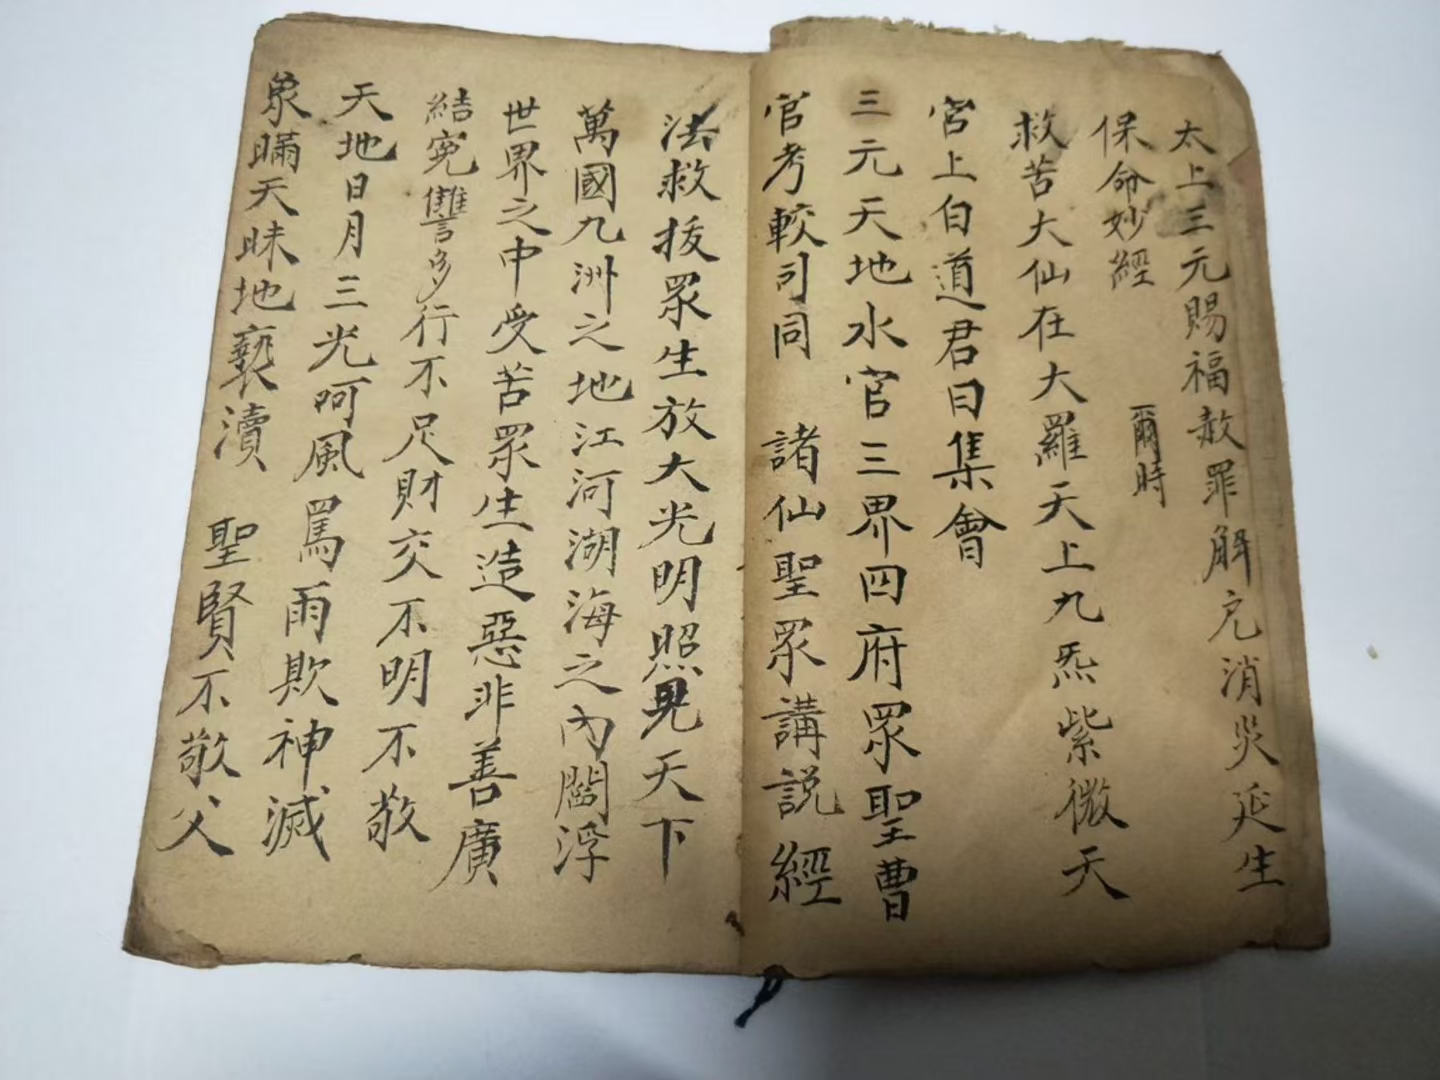 太上三元賜福赦罪解厄消災延生
保命妙經
爾時
救苦大仙在大羅天上九炁紫微天
宮上白道君曰集會
三元天地水官三界四府眾聖曹
官考較司同 諸仙聖眾講説經
法救拔眾生放大光明照見天下
萬國九洲之地江河湖海之內閻浮
世界之中受苦眾生造惡非善廣
結寃讐多行不足財交不明不敬
天地日月三光呵風罵雨欺神滅
象瞞天昧地褻瀆 聖賢不敬父